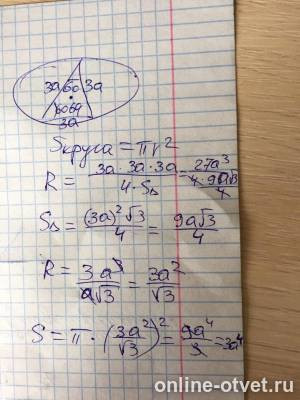 3a 60 3a
60 60
3a
Sкруга = πr²
R = 3a · 3a · 3a / 4 · S△ = 27a³ / 4 · 9a√3 / 4
S△ = (3a)²√3 / 4 = 9a√3 / 4
R = 3a³ / a√3 = 3a² / √3
S = π · (3a² / √3)² = 9a⁴ / 3 = 3a⁴
online-otvet.ru